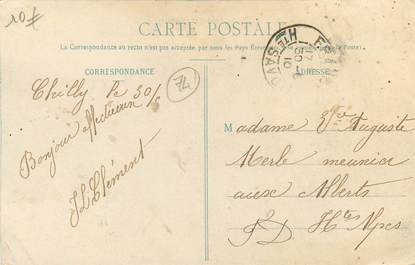 10f
CARTE POSTALE
La Correspondance au recto n'est pas acceptée par tous les Pays Étrangers
CORRESPONDANCE
ADRESSE
74
Hte SAVOIE
30
10
Chilly le 30/5
Bonjour affectueux
JL Clément
Madame Vve Auguste
Merle meunier
aux Alberts
Htes Alpes